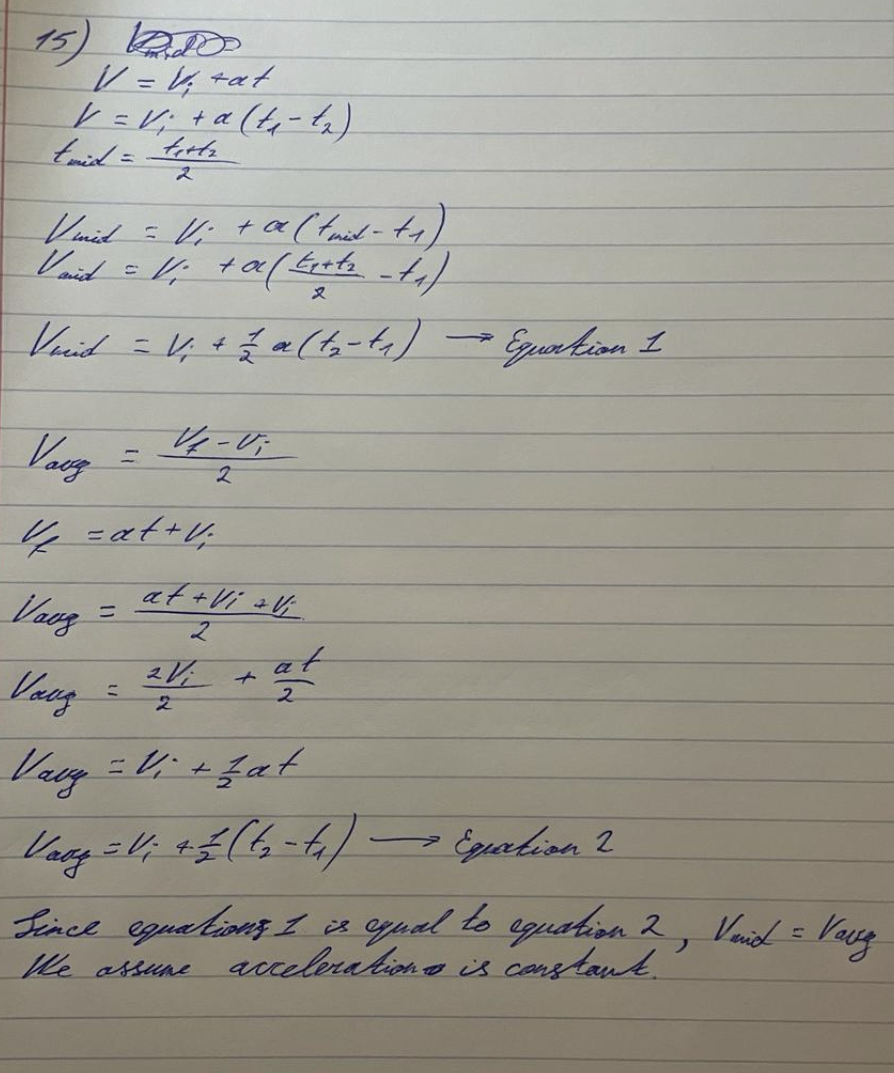 15)
V = Vi + at
V = Vi + a(t1 - t2)
tmid = (t1+t2)/2
Vmid = Vi + a(tmid - t1)
Vmid = Vi + a((t1+t2)/2 - t1)
Vmid = Vi + 1/2 a(t2 - t1) → Equation 1
Vavg = (Vf - Vi)/2
Vf = at + Vi
Vavg = (at + Vi + Vi)/2
Vavg = 2Vi/2 + at/2
Vavg = Vi + 1/2 at
Vavg = Vi + 1/2 (t2 - t1) → Equation 2
Since equation 1 is equal to equation 2, Vmid = Vavg
We assume acceleration is constant.